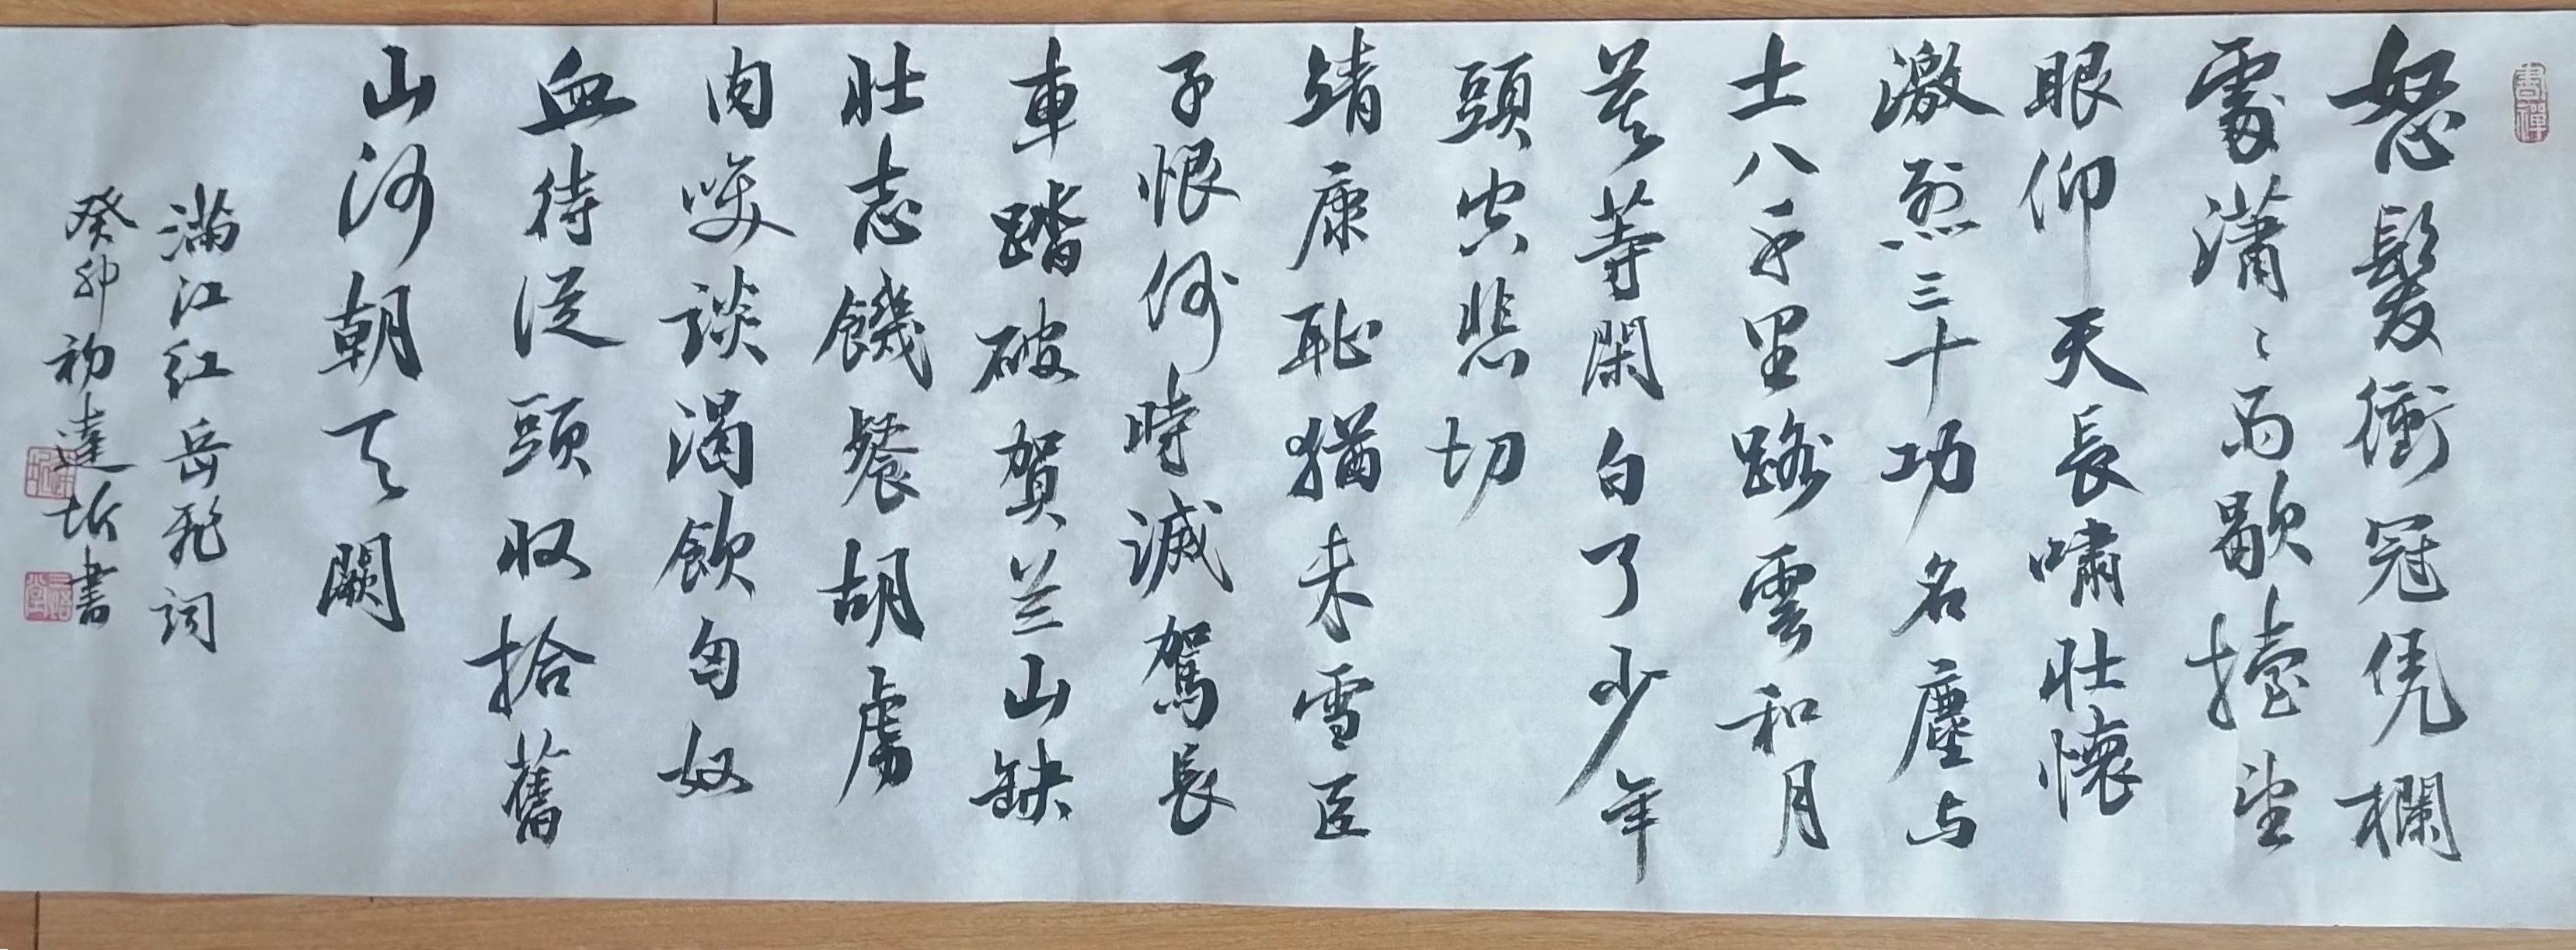 書禪
怒髮衝冠凭欄
處瀟〻雨歇擡望
眼仰天長嘯壯懷
激烈三十功名塵与
土八千里路雲和月
莫等閑白了少年
頭空悲切
靖康恥猶未雪臣
子恨何時滅駕長
車踏破賀兰山缺
壯志饑餐胡虜
肉笑談渴飲匈奴
血待從頭收拾舊
山河朝天闕
滿江红岳飛詞
癸卯初達圻書